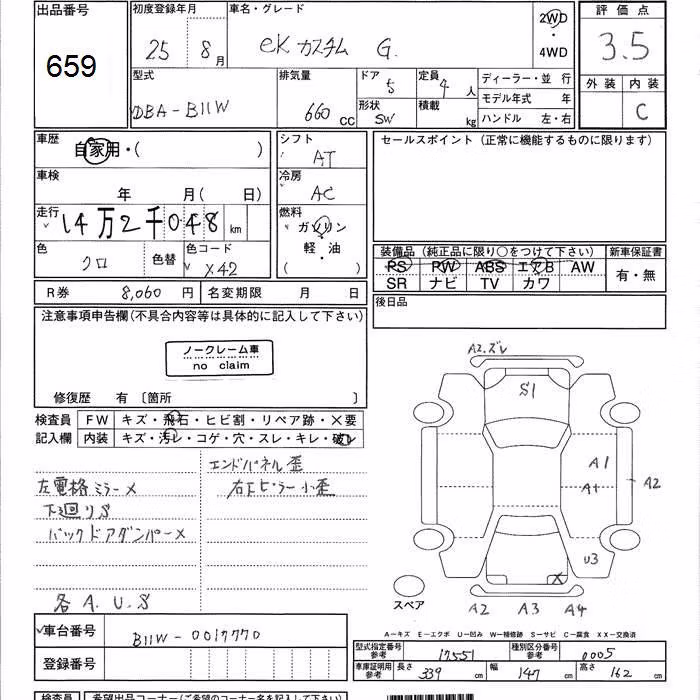 出品番号
659
初度登録年月
25 8月
車名・グレード
eKカスタム G.
2WD
・
4WD
評価点
3.5
外装 内装
C
型式
DBA-B11W
排気量
660 CC
ドア 5
形状 SW
定員 4 人
積載 kg
ディーラー・並行
モデル年式 年
ハンドル 左・右
車歴
自家用・( )
車検
年 月( 日)
走行
14万2千048 km
色
クロ
色替
色コード
X42
シフト
AT
冷房
AC
燃料
ガソリン
軽・油
( ・ )
セールスポイント (正常に機能するものに限ります)
装備品 (純正品に限り○をつけて下さい)
PS PW ABS エアB AW
SR ナビ TV カワ
新車保証書
有・無
R券 8,060 円
名変期限 月 日
後日品
注意事項申告欄(不具合内容等は具体的に記入して下さい)
ノークレーム車
no claim
修復歴 有 〔箇所 〕
検査員
記入欄
FW キズ・飛石・ヒビ割・リペア跡・✕要
内装 キズ・汚レ・コゲ・穴・スレ・キレ・破レ
エンドパネル歪
左電格ミラー✕
右Eピラー小歪
下廻りS
バックドアダンパー✕
各 A. U. S
A2.ズレ
S1
A1
A1
A2
U3
X
スペア
A2 A3 A4
A-キズ E-エクボ U-凹み W-補修跡 S-サビ C-腐食 XX-交換済
車台番号
B11W-0017770
登録番号
型式指定番号
参考
17551
種別区分番号
参考
0005
車庫証明用
参考
長さ 339 cm
幅 147 cm
高さ 162 cm
検査員 希望出品コーナー(ご希望のコーナー名を記入して下さい)